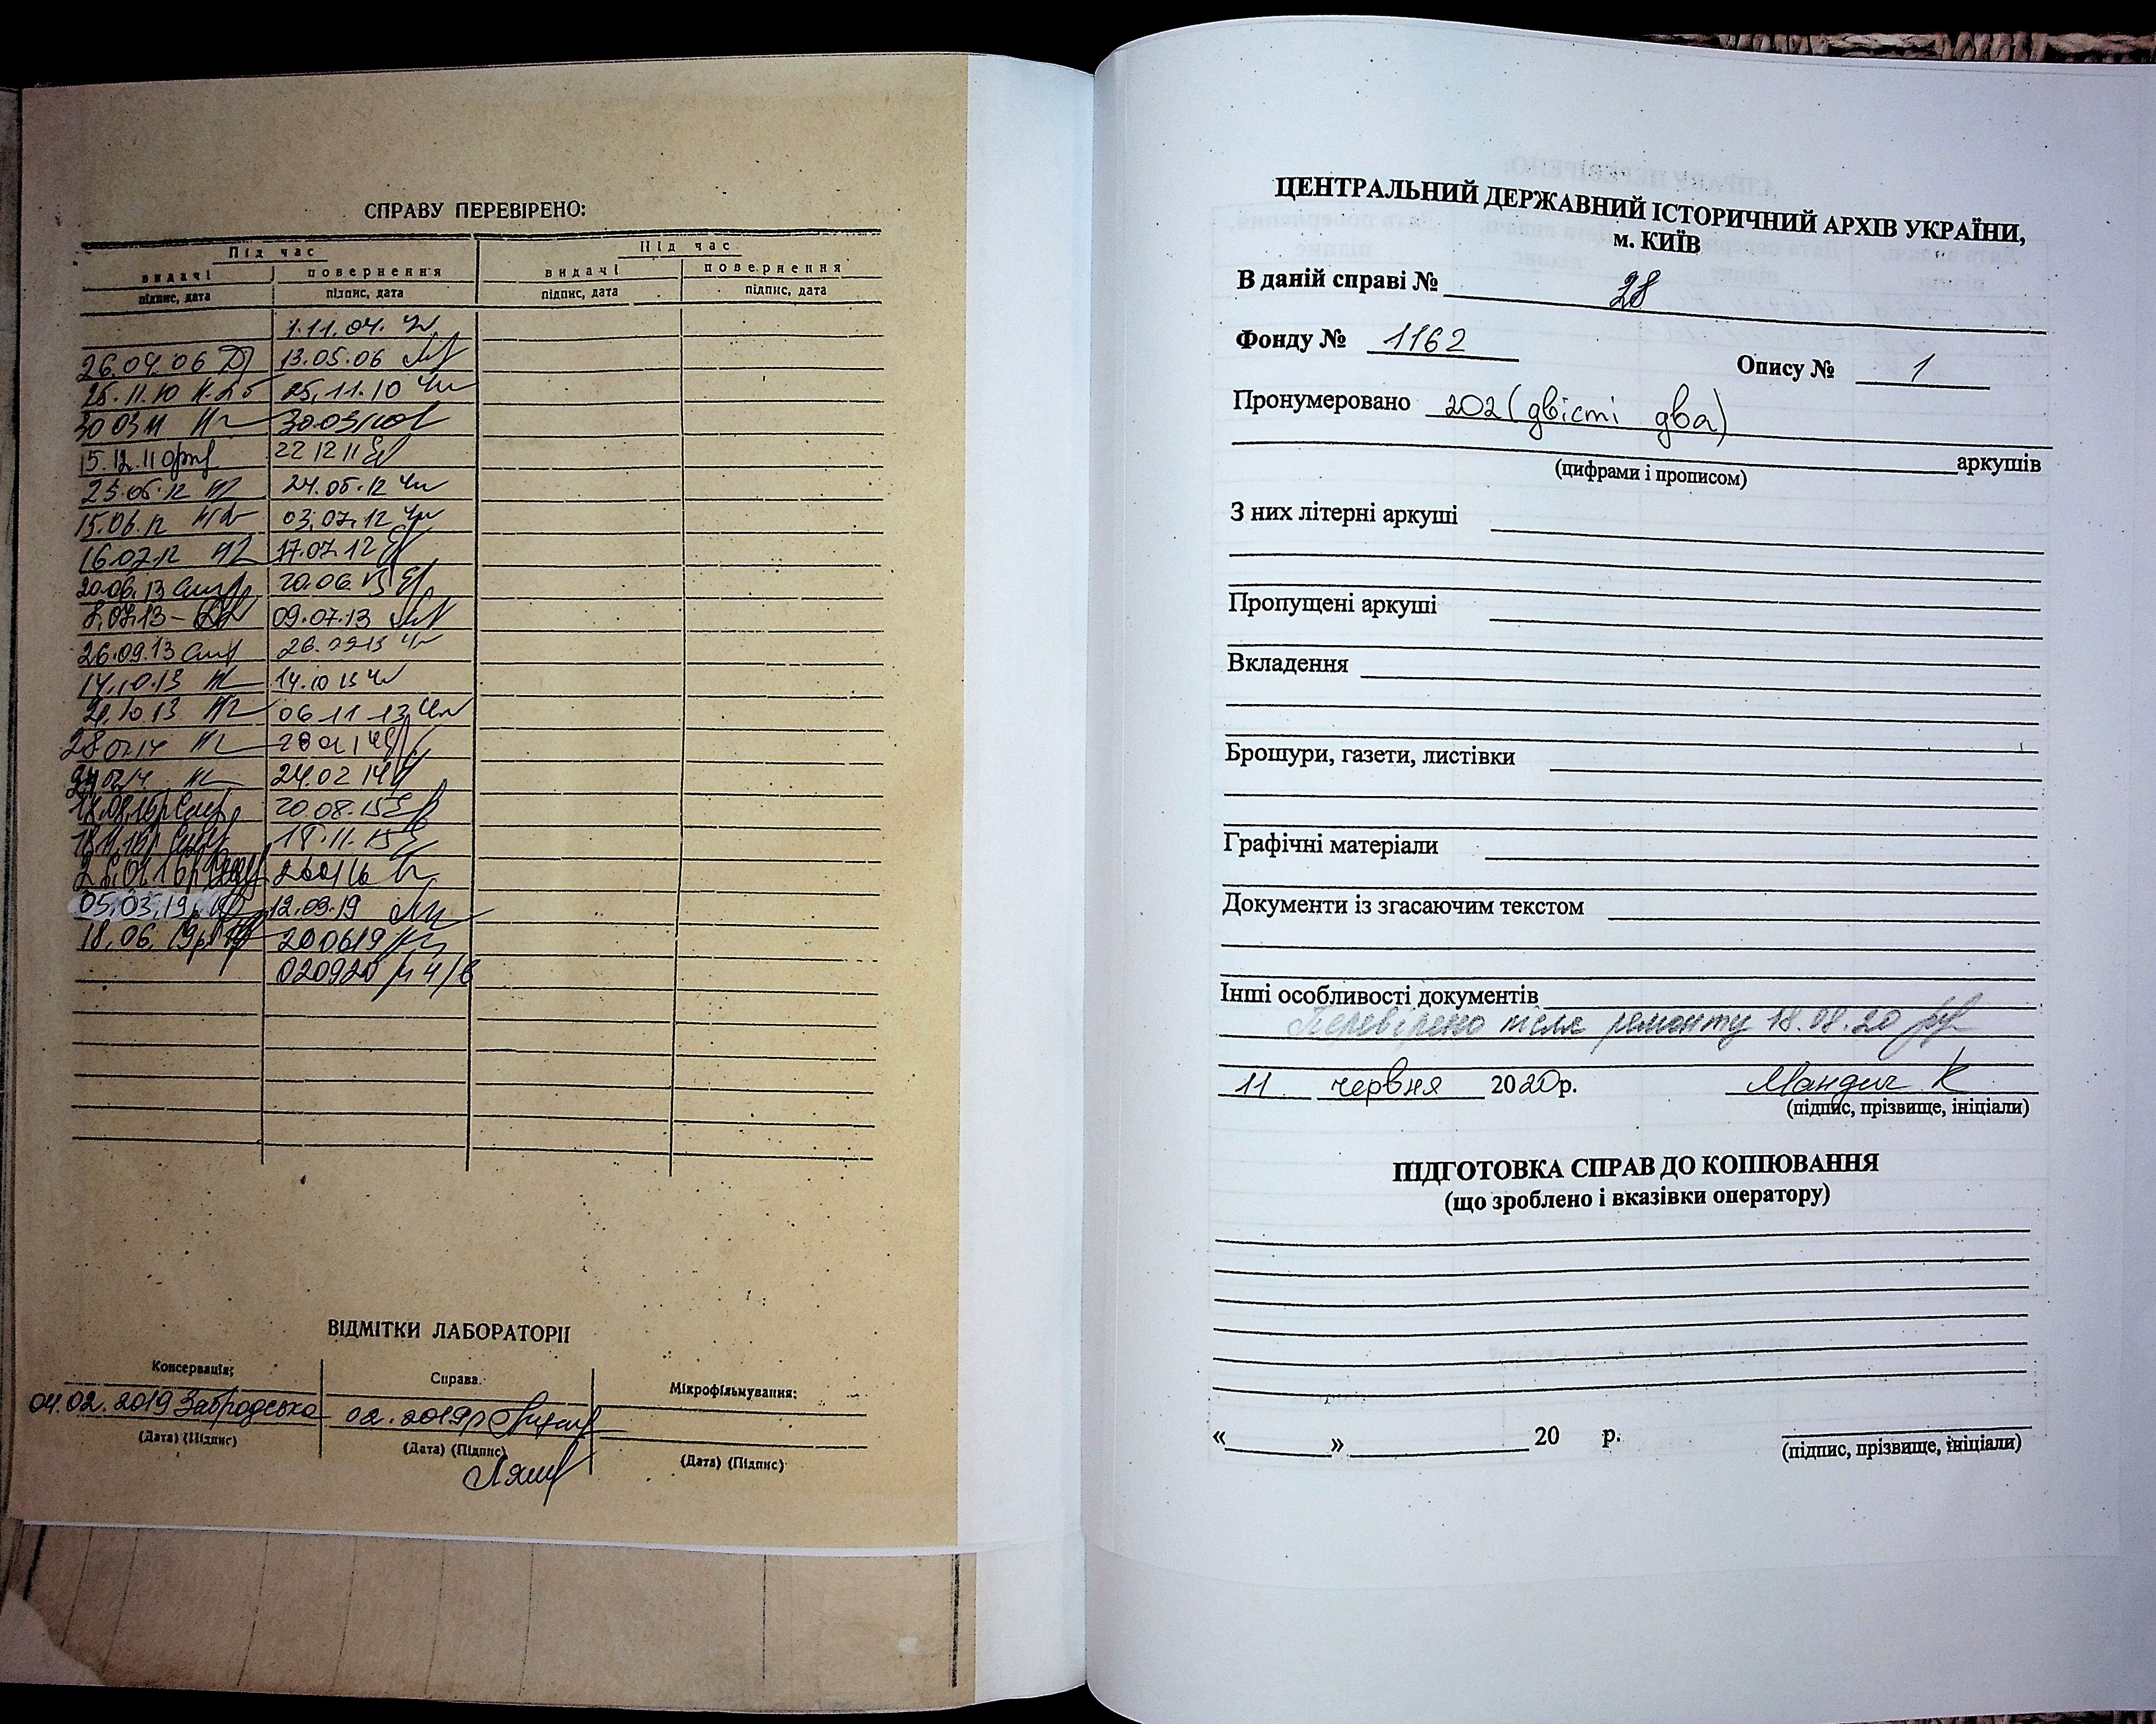 СПРАВУ ПЕРЕВІРЕНО:
Під час Під час
видачі повернення видачі повернення
підпис, дата підпис, дата підпис, дата підпис, дата
1.11.04.
26.04.06 13.05.06
25.11.10 25.11.10
30 03 11 30.03
15.12.11 22 12 11
23.05.12 24.05.12
15.06.12 03.07.12
16.07.12 17.07.12
20.06.13 20.06.13
8.07.13 09.07.13
26.09.13 26.09.13
14.10.13 14.10.13
21.10.13 06 11 13
28.01.14 28 01 14
24.02.14 24.02 14
18.08.15р 20.08.15
18.11.15р 18.11.15
26.01.16р 260116
05.03.19р 12.03.19
18.06.19р 200619
020920
ВІДМІТКИ ЛАБОРАТОРІІ
Консервація: Справа. Мікрофільмування:
04.02.2019 Забродська 02.2019р
(Дата) (Підпис) (Дата) (Підпис) (Дата) (Підпис)
ЦЕНТРАЛЬНИЙ ДЕРЖАВНИЙ ІСТОРИЧНИЙ АРХІВ УКРАЇНИ,
м. КИЇВ
В даній справі № 28
Фонду № 1162
Опису № 1
Пронумеровано 202 (двісті два)
аркушів
(цифрами і прописом)
З них літерні аркуші
Пропущені аркуші
Вкладення
Брошури, газети, листівки
Графічні матеріали
Документи із згасаючим текстом
Інші особливості документів
Перевірено після ремонту 18.08.20
11 червня 2020р. Мандич К
(підпис, прізвище, ініціали)
ПІДГОТОВКА СПРАВ ДО КОПІЮВАННЯ
(що зроблено і вказівки оператору)
« » 20 р.
(підпис, прізвище, ініціали)